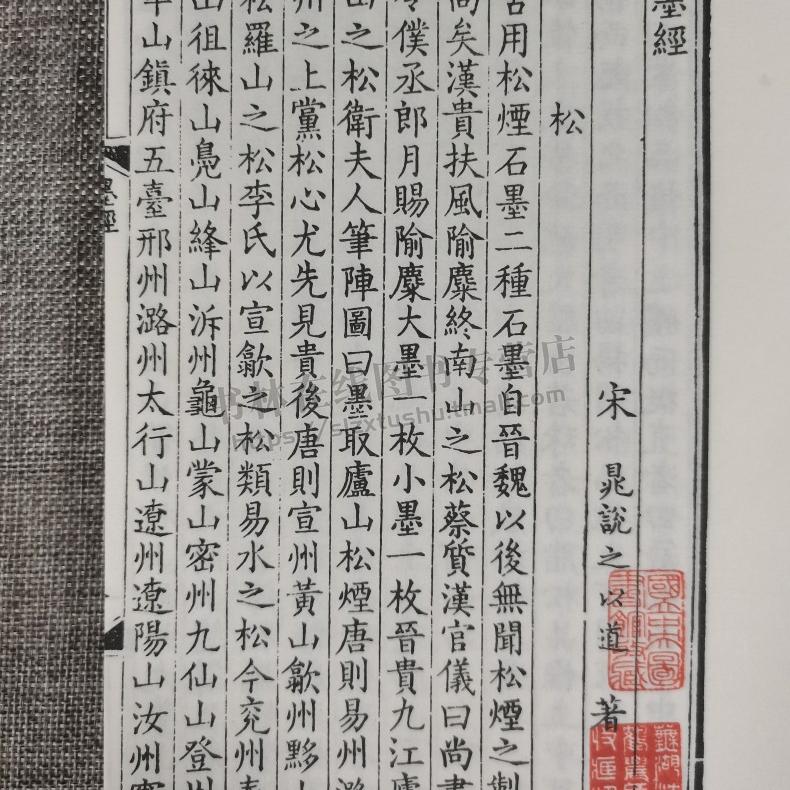 墨經
宋 晁說之以道 著
松
古用松煙石墨二種石墨自晉魏以後無聞松煙之製
尚矣漢貴扶風隃麋終南山之松蔡質漢官儀曰尚書
令僕丞郎月賜隃麋大墨一枚小墨一枚晉貴九江廬
山之松衛夫人筆陣圖曰墨取廬山松煙唐則易州潞
州之上黨松心尤先見貴後唐則宣州黃山歙州黟山
松羅山之松李氏以宣歙之松類易水之松今兗州泰
山徂徠山鳧山縫山泝州龜山蒙山密州九仙山登州
牢山鎮府五臺邢州潞州太行山遼州遼陽山汝州
墨經
书林在线图书专营店
https://slzxtushu.tmall.com